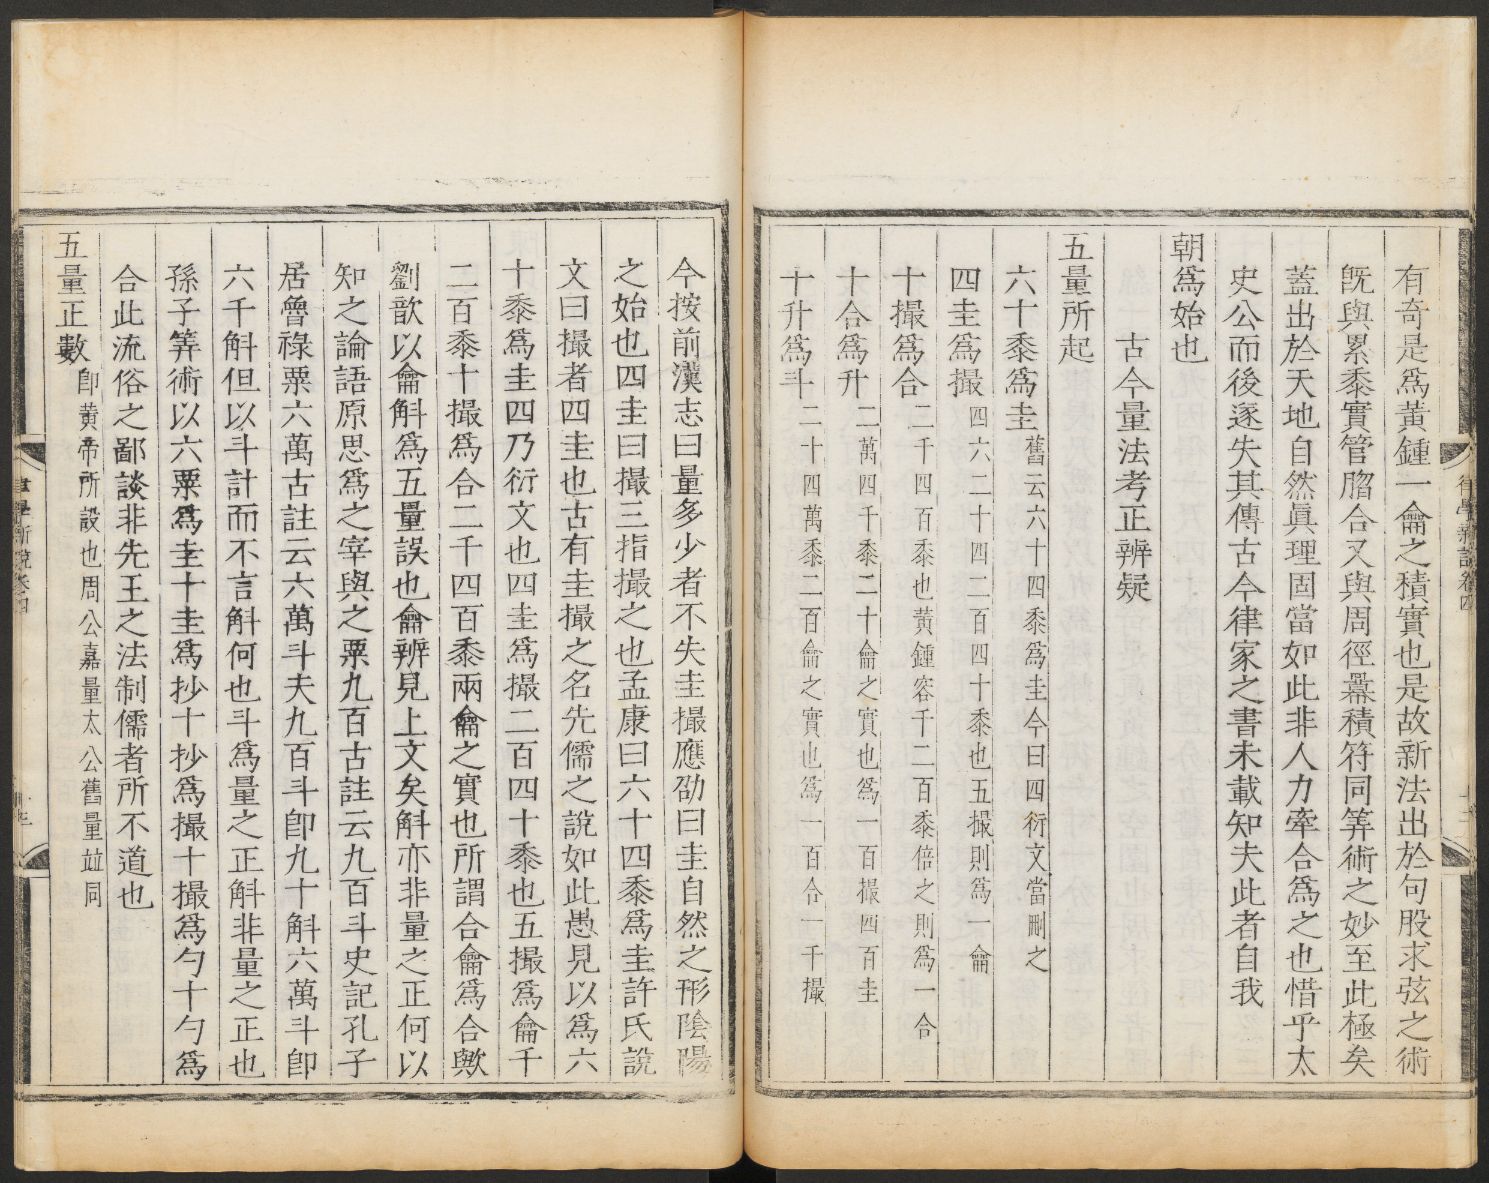 有奇是爲黃鍾一龠之積實也是故新法出於句股求弦之術
旣與累黍實管脗合又與周徑羃積符同筭術之妙至此極矣
蓋出於天地自然眞理固當如此非人力牽合爲之也惜乎太
史公而後遂失其傳古今律家之書未載知夫此者自我
朝爲始也
古今量法考正辨疑
五量所起
六十黍爲圭舊云六十四黍爲圭今曰四衍文當刪之
四圭爲撮四六二十四二百四十黍也五撮則爲一龠
十撮爲合二千四百黍也黃鍾容千二百黍倍之則爲一合
十合爲升二萬四千黍二十龠之實也爲一百撮四百圭
十升爲斗二十四萬黍二百龠之實也爲一百合一千撮
律學新說卷四
今按前漢志曰量多少者不失圭撮應劭曰圭自然之形陰陽
之始也四圭曰撮三指撮之也孟康曰六十四黍爲圭許氏說
文曰撮者四圭也古有圭撮之名先儒之說如此愚見以爲六
十黍爲圭四乃衍文也四圭爲撮二百四十黍也五撮爲龠千
二百黍十撮爲合二千四百黍兩龠之實也所謂合龠爲合歟
劉歆以龠斛爲五量誤也龠辨見上文矣斛亦非量之正何以
知之論語原思爲之宰與之粟九百古註云九百斗史記孔子
居魯祿粟六萬古註云六萬斗夫九百斗卽九十斛六萬斗卽
六千斛但以斗計而不言斛何也斗爲量之正斛非量之正也
孫子筭術以六粟爲圭十圭爲抄十抄爲撮十撮爲勺十勺爲
合此流俗之鄙談非先王之法制儒者所不道也
五量正數卽黃帝所設也周公嘉量太公舊量竝同
律學新說卷四